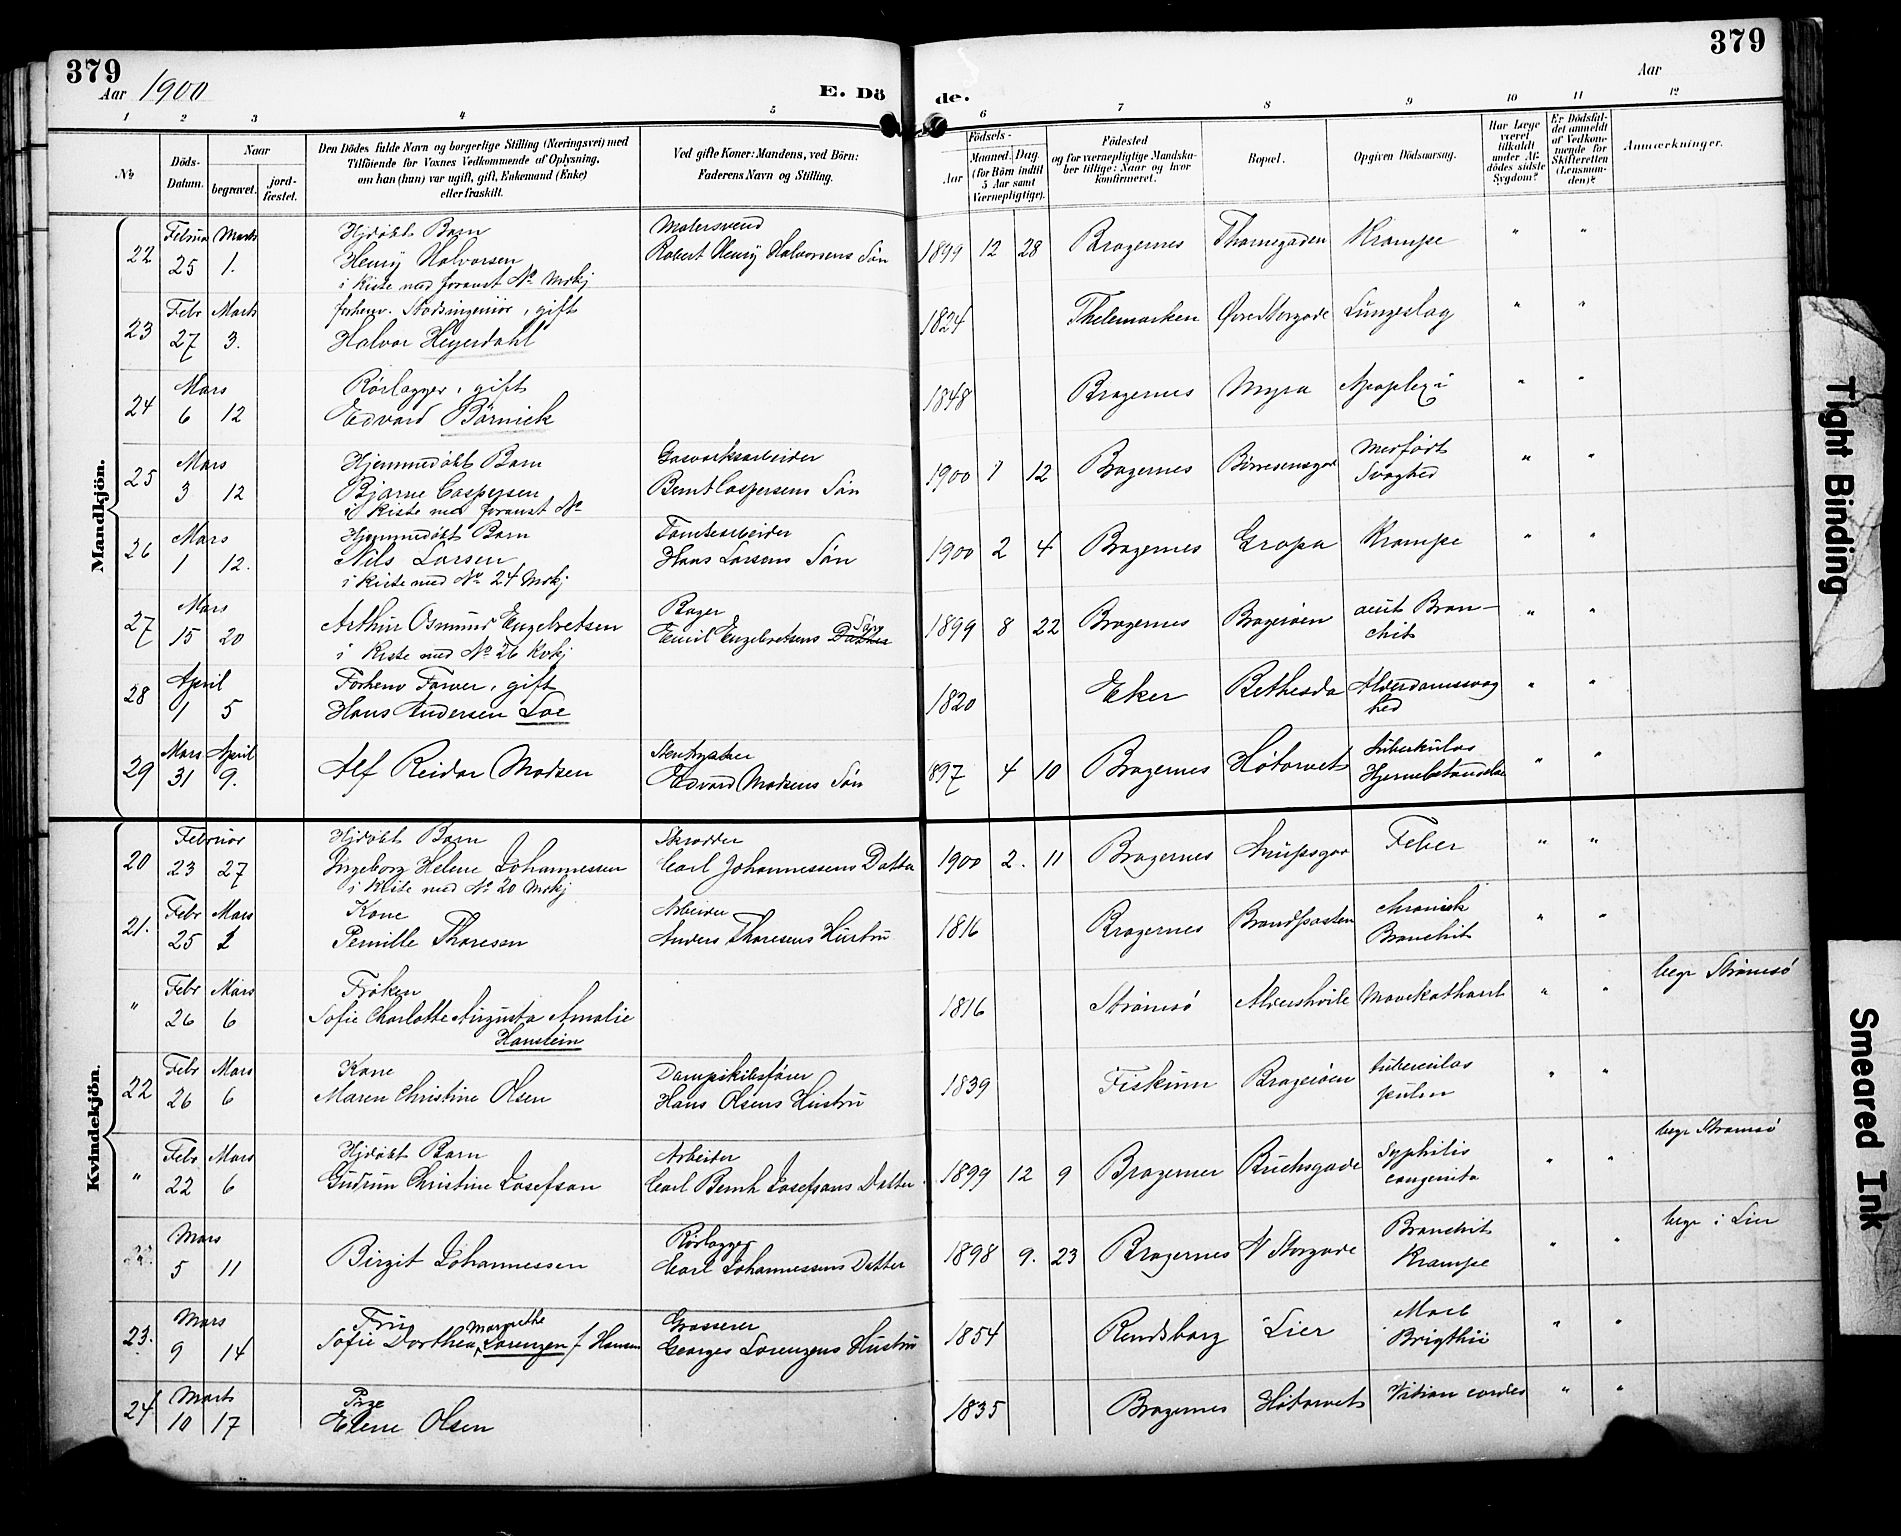 379
379
Aar 1900
E. Döde.
Aar
1 2 3 4 5 6 7 8 9 10 11 12
No
Döds-Datum.
Naar
begravet.
jord-fæstet.
Den Dödes fulde Navn og borgerlige Stilling (Næringsvei) med
Tilföiende for Voxnes Vedkommende af Oplysning,
om han (hun) var ugift, gift, Enkemand (Enke)
eller fraskilt.
Ved gifte Koner: Mandens, ved Börn:
Faderens Navn og Stilling.
Födsels-
Aar
Maaned. Dag.
(for Börn indtil
5 Aar samt
Værnepligtige).
Födested
og for værnepligtige Mandska-
ber tillige: Naar og hvor
konfirmeret.
Bopæl.
Opgiven Dödsaarsag.
Har Læge
været
tilkaldt
under Af-
dödes sidste
Sygdom?
Er Dödsfal-
det anmeldt
af Vedkom-
mende for
Skifteretten
(Lensman-
den)?
Anmærkninger.
Mandkjön.
22 Februar 25 Marts 1. Hjdøbt Barn
Henry Halvorsen
i Kiste med foranst No Mdkj
Malersvend
Robert Henry Halvorsens Søn 1899 12 28 Bragernes Thomsgaden Krampe " "
23 Febr 27 Marts 3. forhenv. Stadsingeniør, gift
Halvor Heyerdahl 1824 Thelemarken Øvre Storgade Lungeslag " "
24 Mars 6 12 Rørlægger, gift
Edvard Børnick 1848 Bragernes Myra Apoplexi " "
25 Mars 3 12 Hjemmedøbt Barn
Bjarne Caspersen
i Kiste med foranst No
Gasværksarbeider
Bernt Caspersens Søn 1900 1 12 Bragernes Børresensgad Medfødt
Svaghed " "
26 Mars 1 12. Hjemmedøbt Barn
Nils Larsen
i Kiste med No 24 Mdkj
Tomtearbeider
Hans Larsens Søn 1900 2 4 Bragernes Gropa Krampe " "
27 Mars 15 20 Arthur Osmund Engebretsen
i Kiste med No 26 Kvkj
Bager
Emil Engebretsens Datter Søn 1899 8 22 Bragernes Bragerøen acut Bron-
chit " "
28 April 1 5 Forhenv Farver, gift
Hans Andersen Loe 1820 Eker Bethesda Alderdomssvag
hed " "
29 Mars 31 April 9. Alf Reidar Madsen
Edvard Madsens Søn 897 4 10 Bragernes Høtorvet tuberkuløs
Hjernebetændelse " "
Kvindekjön.
20 Februar 23 27 Hjdøbt Barn
Ingeborg Helene Johannessen
i Kiste med No 20 Mdkj
Skrædder
Carl Johannessens Datter 1900 2. 11 Bragernes Feber " "
21. Febr 25 Mars Kone
Pernille Thoresen
Arbeider
Anders Thoresens Hustru 1816 Bragernes Brandposten chronisk
Bronchit " "
" Febr 26 Mars 6 Frøken
Sofie Charlotte Augusta Amalie
Hanstein 1816 Strømsø Alvershvile Mavekatharrh " " begr Strømsø
22 Febr 26 Mars 6 Kone
Maren Christine Olsen
Dampskibsfører
Hans Olsens Hustru 1839 Fiskum Bragerøen tuberculos
pulm " "
" Febr 22 Mars 6 Hjdøbt Barn
Gudrun Christine Josefson
Arbeider
Carl Bernh Josefsons Datter 1899 12 9 Bragernes Buchsgade Syphilis
congenita " " begr Strømsø
Mars 5 11 Birgit Johannessen
Rørlægger
Carl Johannessens Datter 1898 9. 23 Bragernes N Storgade Bronchit
Krampe " " begr i Lier
23. Mars 9 14 Fru
Sofie Dorthea Margrethe Lorenzen f Hansen
Grosserer
Georges Lorenzens Hustru 1854 Rendsborg Lier Morb
Brigthii " "
24 Marts 10 17 Pige
Elene Olsen 1835 Bragernes Høtorvet Vitium cordis " "
Tight Binding
Smeared Ink